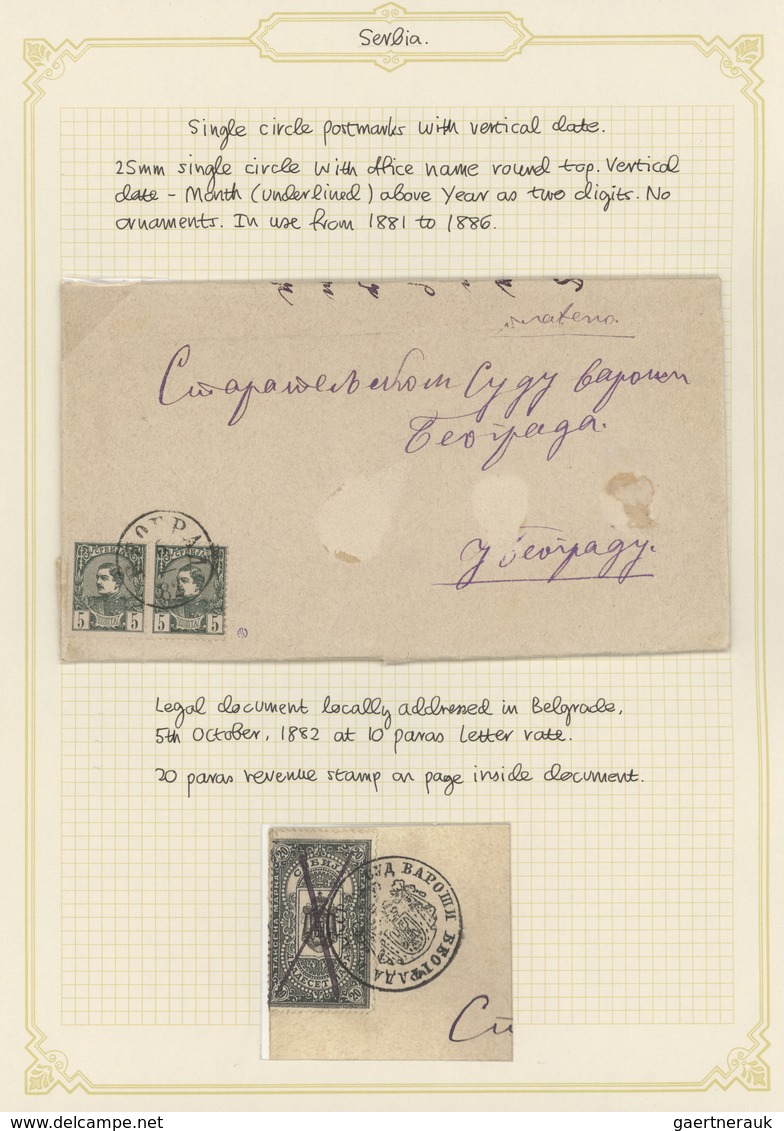 Serbia.
Single circle postmarks with vertical date.
25mm single circle with office name round top. Vertical
date - Month (underlined) above Year as two digits. No
ornaments. In use from 1881 to 1886.
Старатељском Суду вароши
Београда.
у Београду.
СРБИЈА
5 ПОШТА 5
5 5
Legal document locally addressed in Belgrade,
5th October, 1882 at 10 paras letter rate.
20 paras revenue stamp on page inside document.
20 20
СРБИЈА
20 20
СУД ВАРОШИ БЕОГРАДА
Ст
Delcampe.net
gaertnerauk